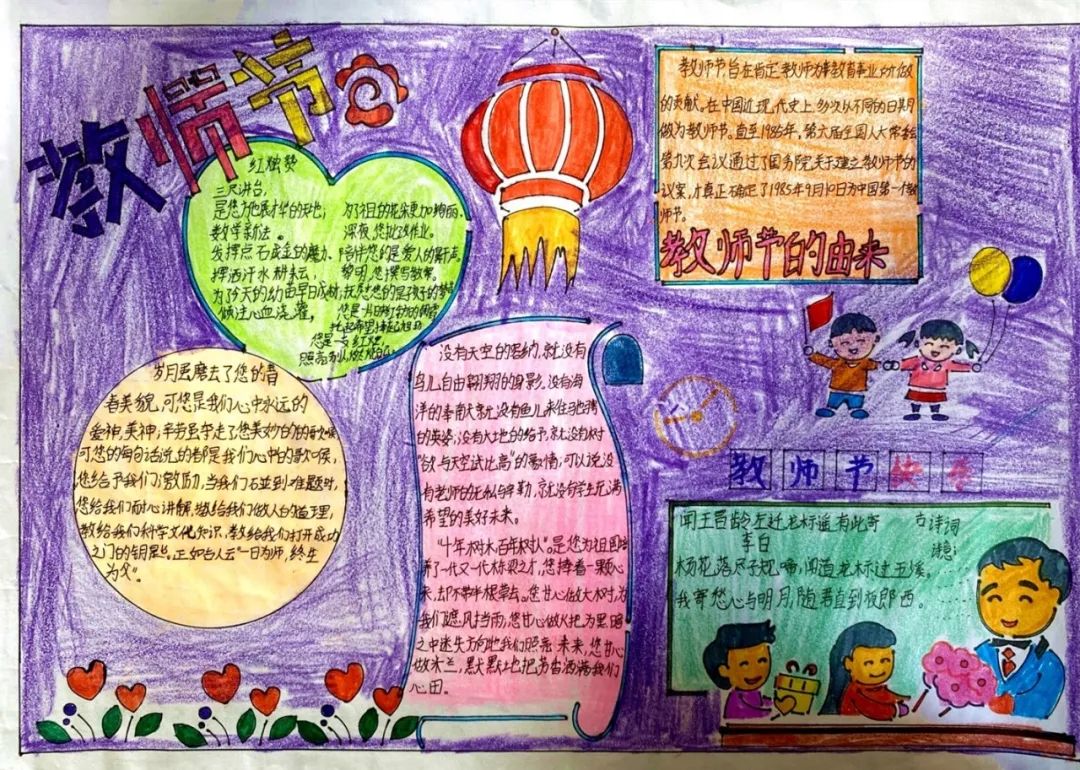 教师节
红烛赞
三尺讲台,
是您施展才华的天地;
教学新法。
发挥点石成金的魔力、
挥洒汗水耕耘,
为了今天的幼苗早日成材,
倾注心血浇灌,
为了祖国的花朵更加绚丽
深夜,您批改作业。
陪伴您的是爱人的鼾声,
黎明,您撰写教案。
您是一支红烛,
教师节,旨在肯定教师为教育事业所做
的贡献。在中国近现代史上,多次以不同的日期
做为教师节。直至1985年,第六届全国人大常委会
第九次会议通过了国务院关于建立教师节的
议案,才真正确定了1985年9月10日为中国第一个教
师节。
教师节的由来
岁月虽磨去了您的昔
春美貌,可您是我们心中永远的
爱神,美神;辛劳虽夺走了您美妙的歌喉
可您的每句话说的都是我们心中的歌喉,
您给予我们心激励,当我们碰到难题时,
您给我们耐心讲解,教给我们做人的道理,
教给我们科学文化知识,教给我们打开成功
之门的钥匙。正如古人云“一日为师,终生
为父”。
没有天空的恩纳,就没有
鸟儿自由翱翔的身影。没有海
洋的奉献,就没有鱼儿来往驰骋
的英姿;没有大地的给予,就没有树
“欲与天空试比高”的豪情;可以说没
有老师的无私与辛勤,就没有学生充满
希望的美好未来。
“十年树木,百年树人”是您为祖国培
养了一代又一代栋梁之才,您捧着一颗心
来,却不带半根草去。您甘心做大树,为
我们遮风挡雨,您甘心做火把,为黑暗
之中迷失方向的我们照亮未来,您甘心
做木兰,默默地把芳香洒满我们
心田。
教师节快乐
闻王昌龄左迁龙标遥有此寄
李白
古诗词
杨花落尽子规啼,闻道龙标过五溪。
我寄愁心与明月,随君直到夜郎西。